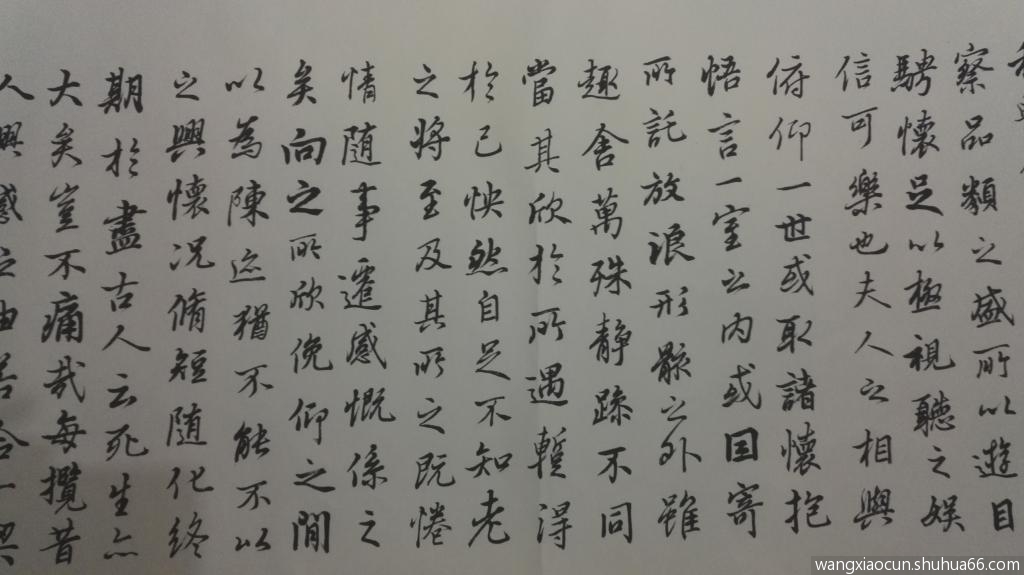 察品類之盛所以遊目
騁懷足以極視聽之娛
信可樂也夫人之相與
俯仰一世或取諸懷抱
悟言一室之內或因寄
所託放浪形骸之外雖
趣舍萬殊靜躁不同
當其欣於所遇暫得
於己怏然自足不知老
之將至及其所之既惓
情隨事遷感慨係之
矣向之所欣俛仰之間
以為陳迹猶不能不以
之興懷況脩短隨化終
期於盡古人云死生亦
大矣豈不痛哉每攬昔
人興感之由若合一契
wangxiaocun.shuhua66.com